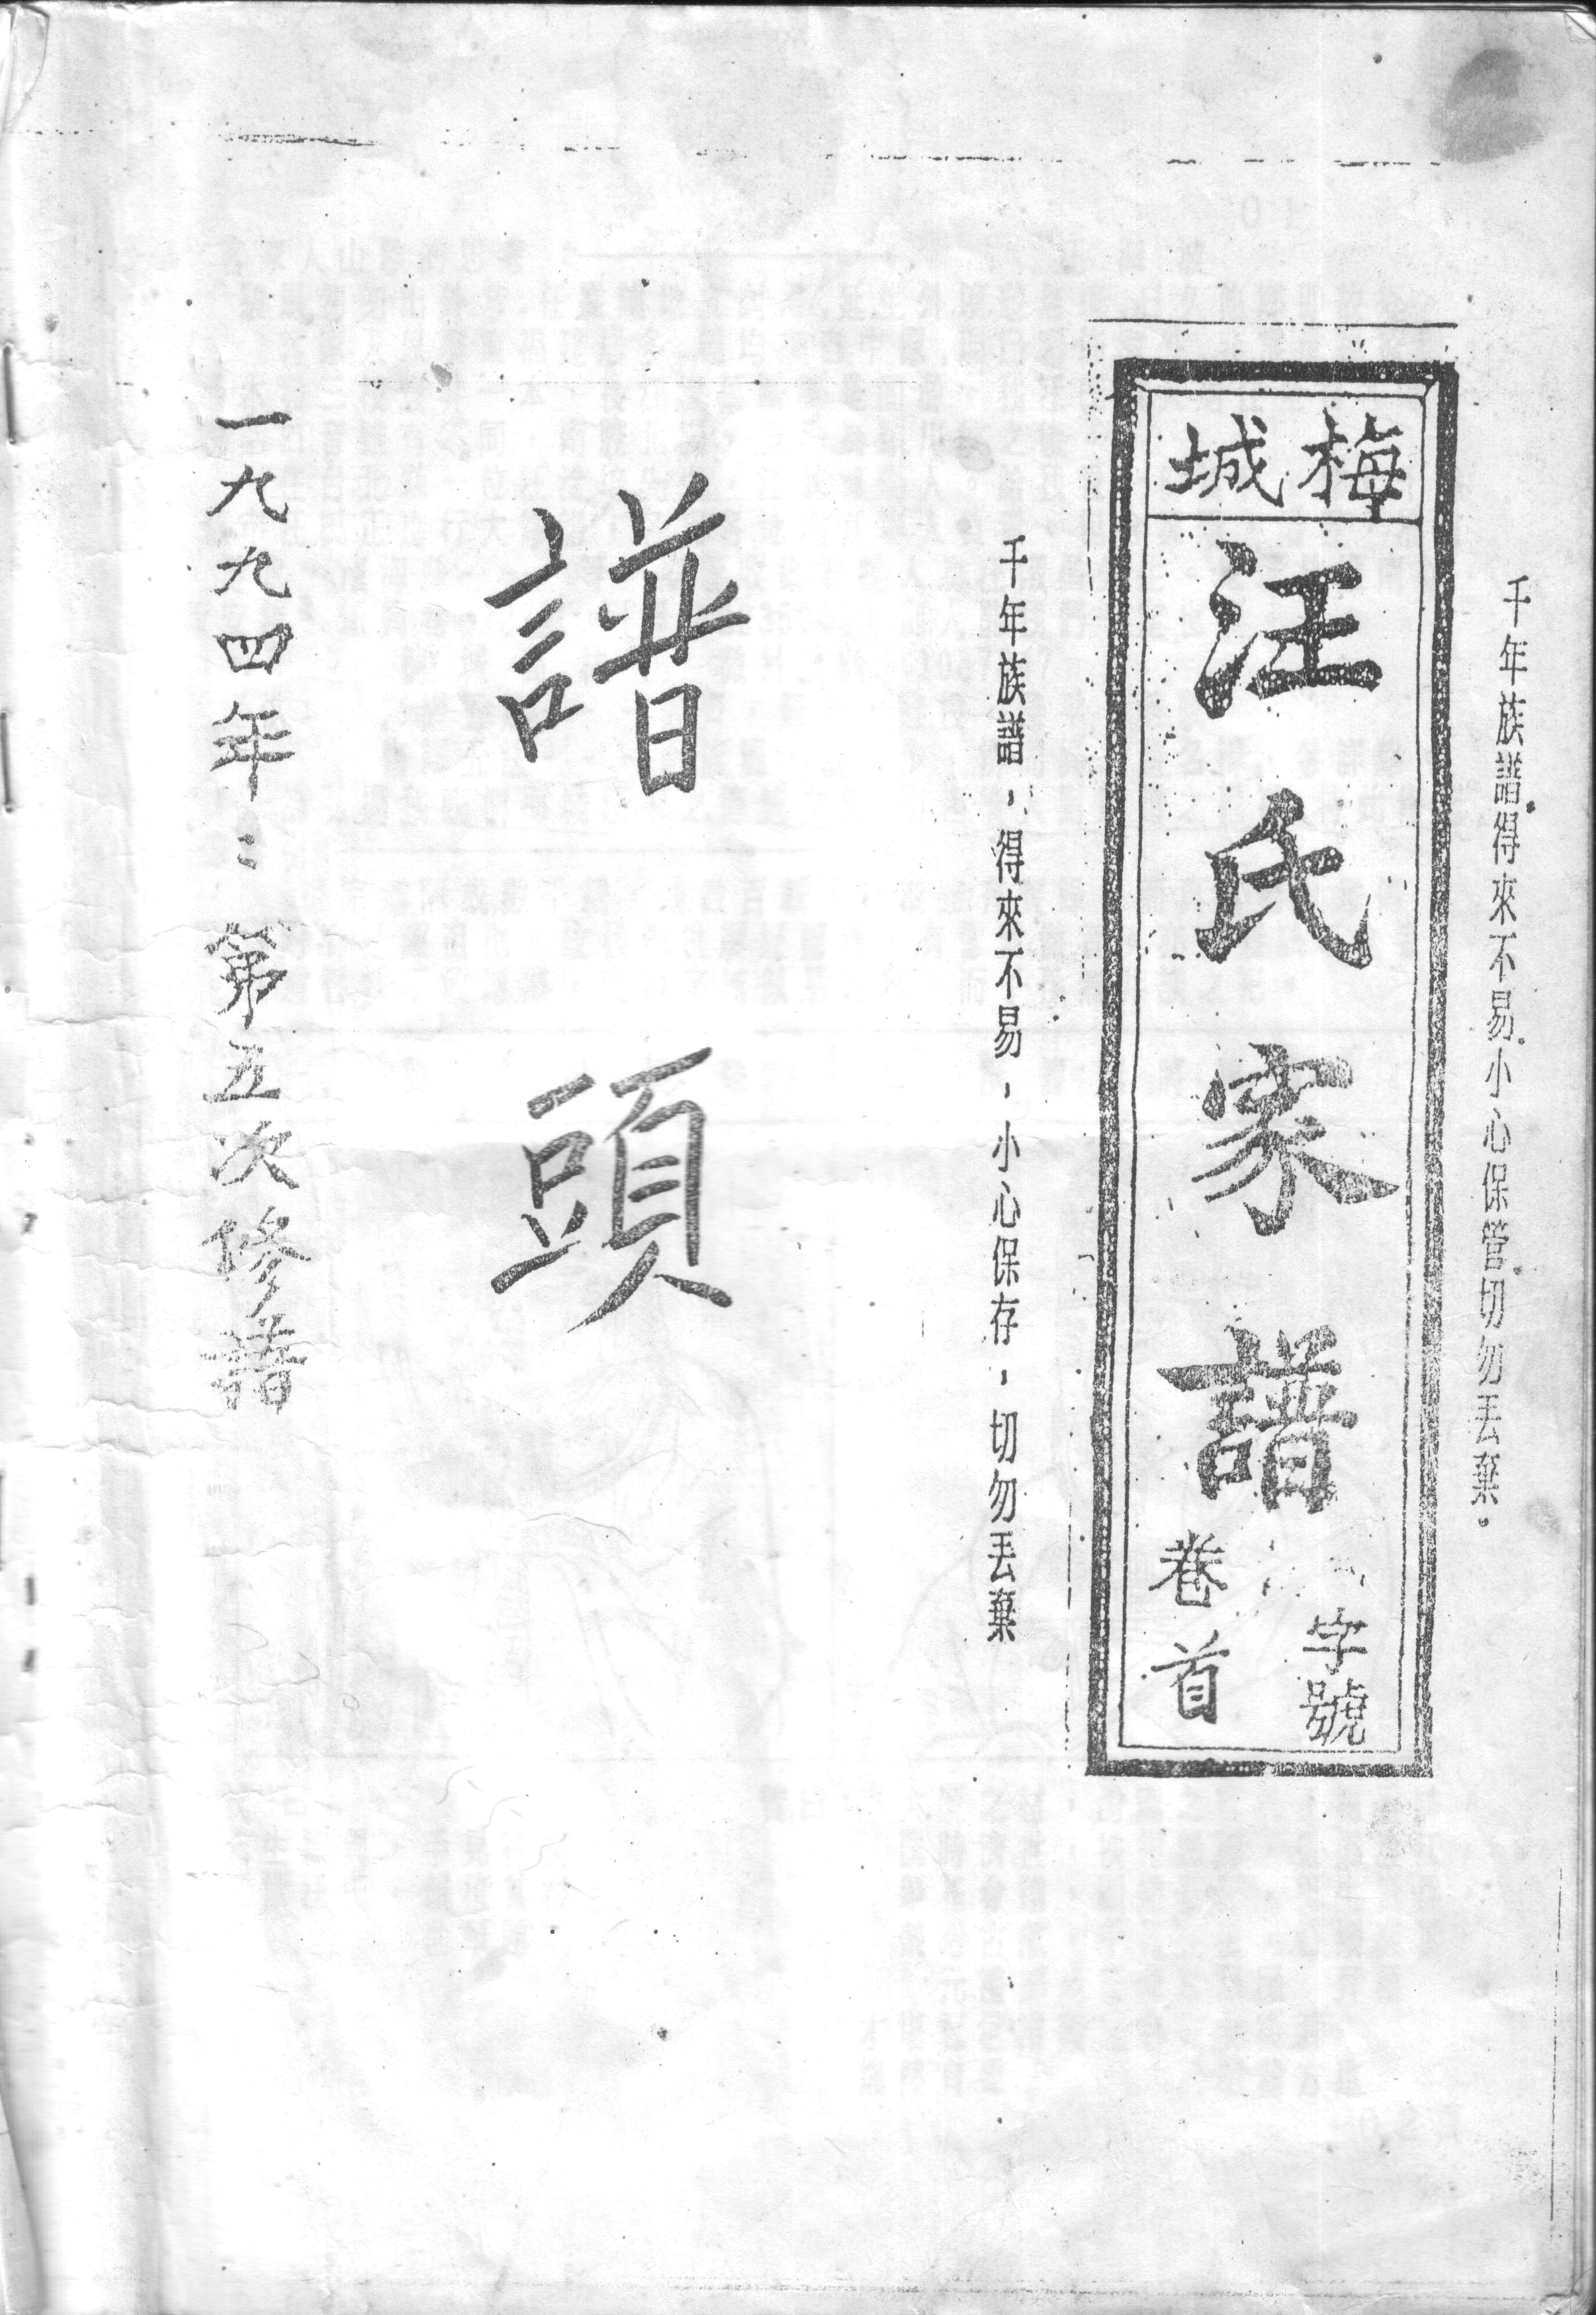 千年族譜得來不易。小心保管。切勿丟棄。
梅城
汪氏家譜
字號
卷首
千年族譜，得來不易，小心保存，切勿丟棄
譜頭
一九九四年：第五次修譜